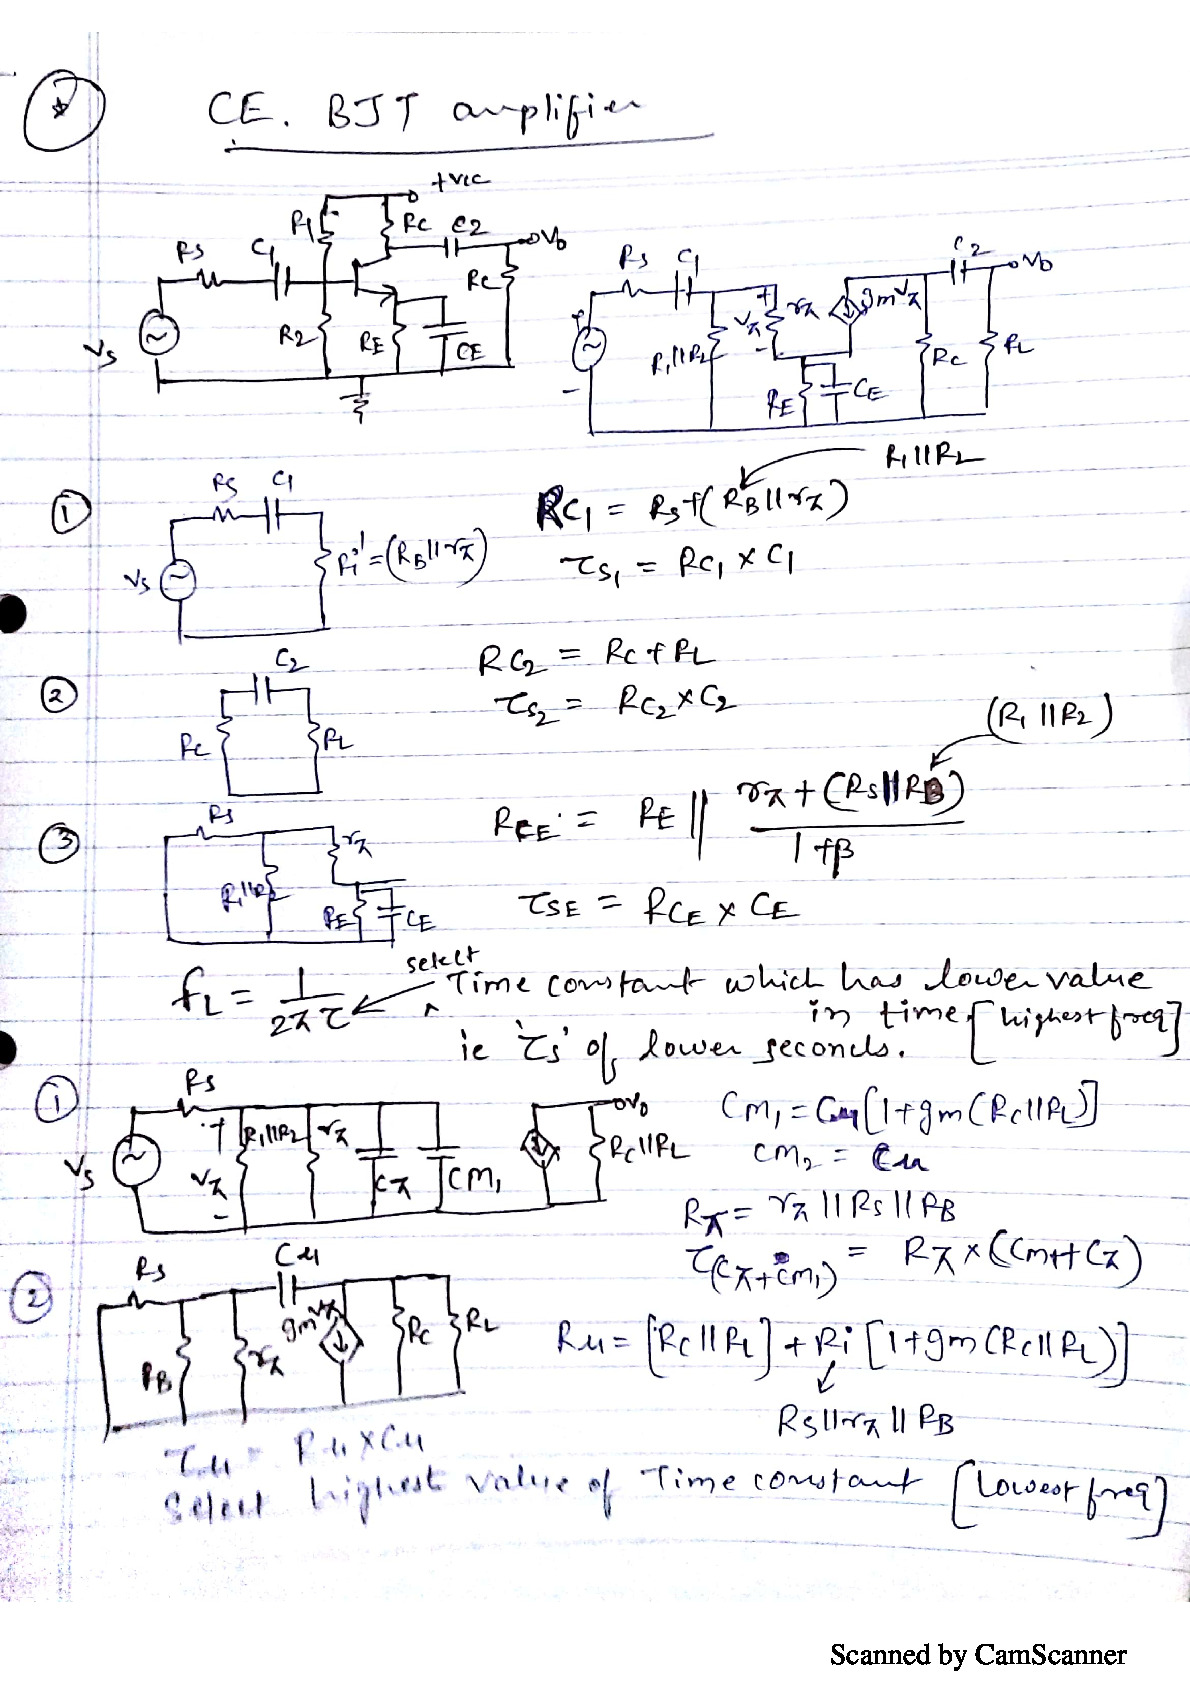 CE. BJT amplifier
+VCC
R1
RC
C2
Vo
RS
C1
RC
R2
RE
CE
VS
RS
C1
C2
Vo
+
Vπ
-
rπ
gmVπ
R1||R2
RC
RL
RE
CE
-
①
RS
C1
VS
Ri' = (RB||rπ)
R1||R2
RC1 = RS + (RB||rπ)
τS1 = RC1 × C1
②
C2
RC
RL
RC2 = RC + RL
τS2 = RC2 × C2
(R1||R2)
③
RS
rπ
R1||R2
RE
CE
RCE = RE || rπ + (RS||RB) / 1+β
τSE = RCE × CE
fL = 1 / 2πτ
select
Time constant which has lower value
in time [highest freq]
ie 'τs' of lower seconds.
①
RS
VS
+
Vπ
-
R1||R2
rπ
Cπ
CM1
Vo
RC||RL
CM1 = Cμ[1+gm(RC||RL)]
CM2 = Cμ
Rπ = rπ||RS||RB
τ(Cπ+CM1) = Rπ × (CM1+Cπ)
②
RS
Cμ
RB
rπ
gmVπ
RC
RL
Rμ = [RC||RL] + Ri[1+gm(RC||RL)]
RS||rπ||RB
τμ = Rμ × Cμ
Select highest value of Time constant [Lowest freq]
Scanned by CamScanner